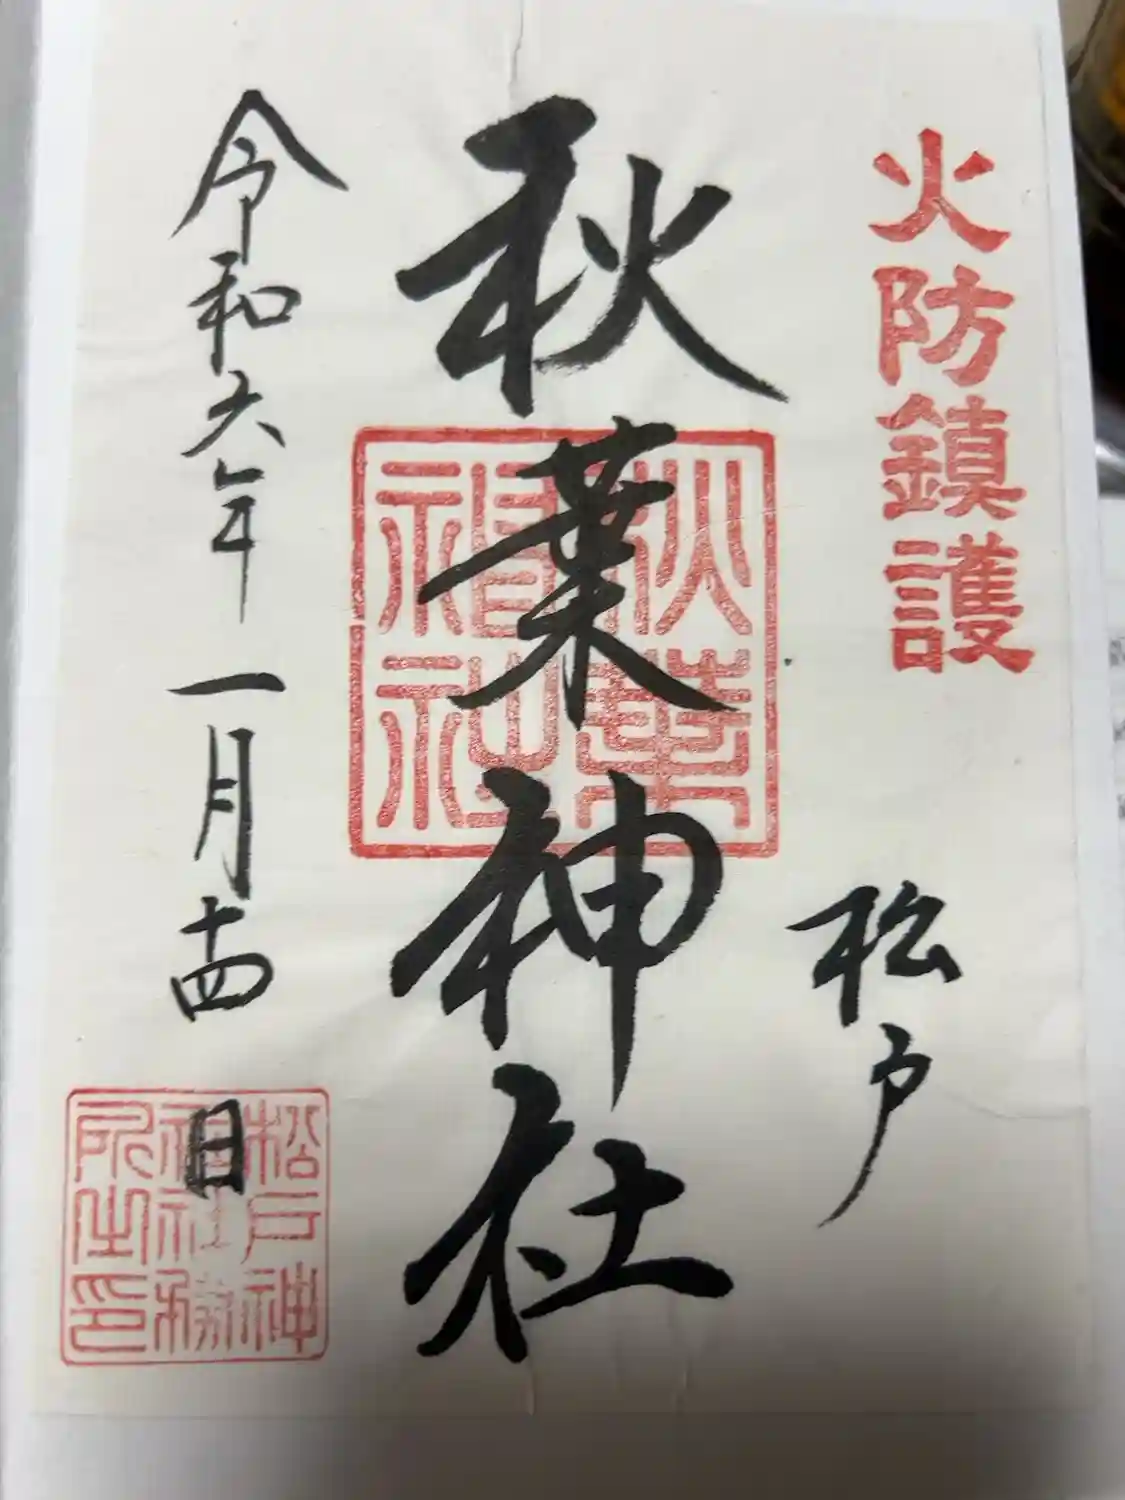 火防鎮護
松戸
秋葉神社
秋葉
神社
令和六年一月十四日
松戸神
社務
所之印